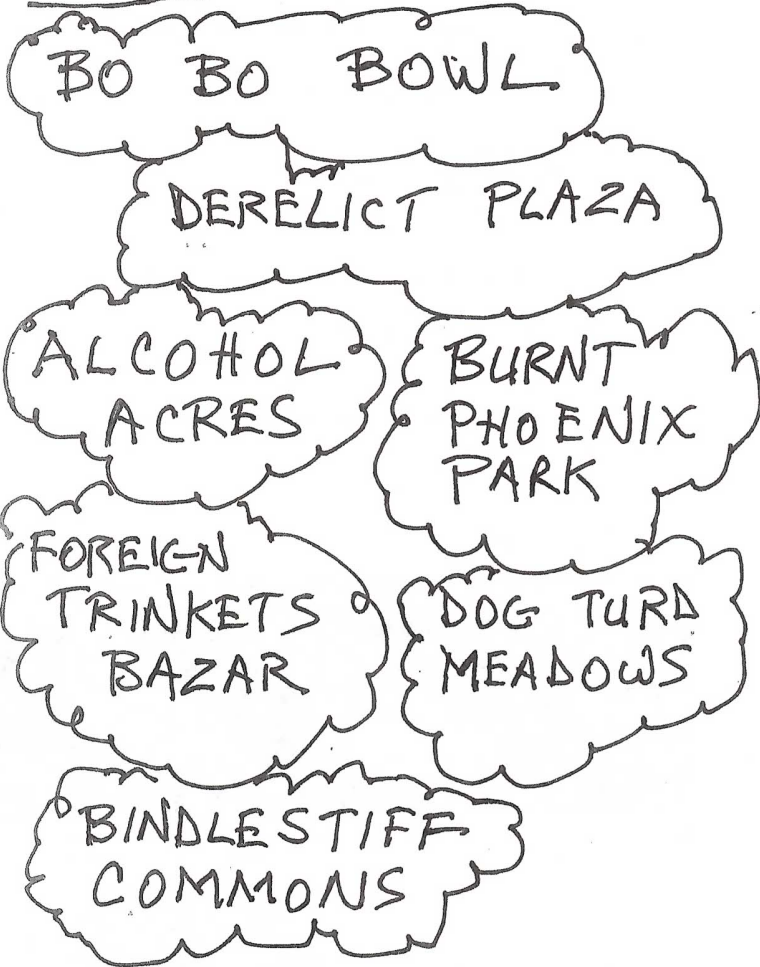 BO BO BOWL
DERELICT PLAZA
ALCOHOL
ACRES
BURNT
PHOENIX
PARK
FOREIGN
TRINKETS
BAZAR
DOG TURD
MEADOWS
BINDLESTIFF
COMMONS